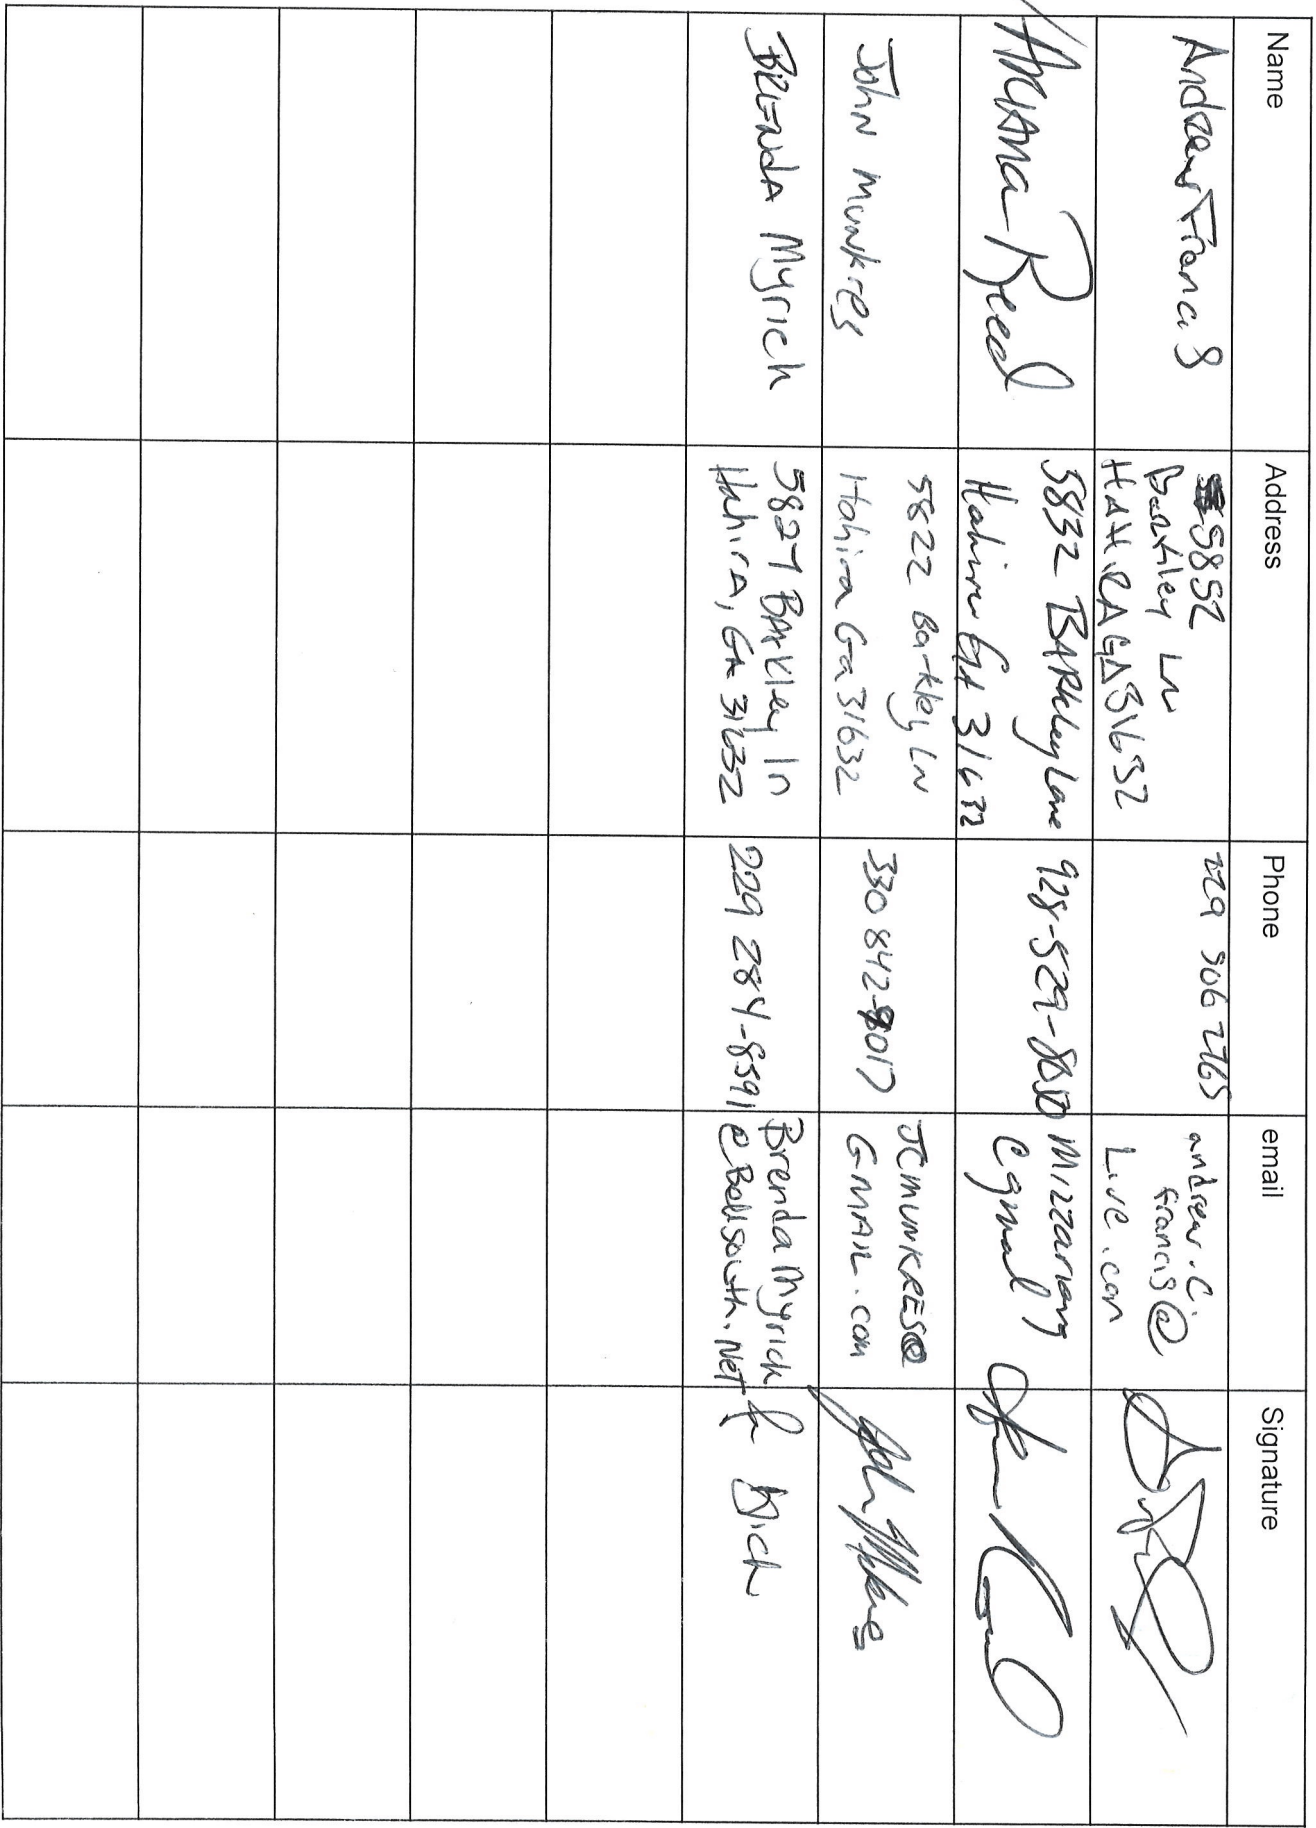 Name Address Phone email Signature
Andrew Francis
5852
Barkley LN
HAHIRA GA 31632
229 506 2765
andrew.c.
francis@
Live.com
Ariana Reed
5832 BARKley Lane
Hahira GA 31632
928-529-8050
Mizzariana
@gmail
John Munkres
5822 Barkley LN
Hahira Ga 31632
330 842-9017
JCMUNKRES@
GMAIL.com
BRENDA Myrick
5827 BARKley ln
HahirA, GA 31632
229 284-8591
BrendaMyrick
@Bellsouth.Net